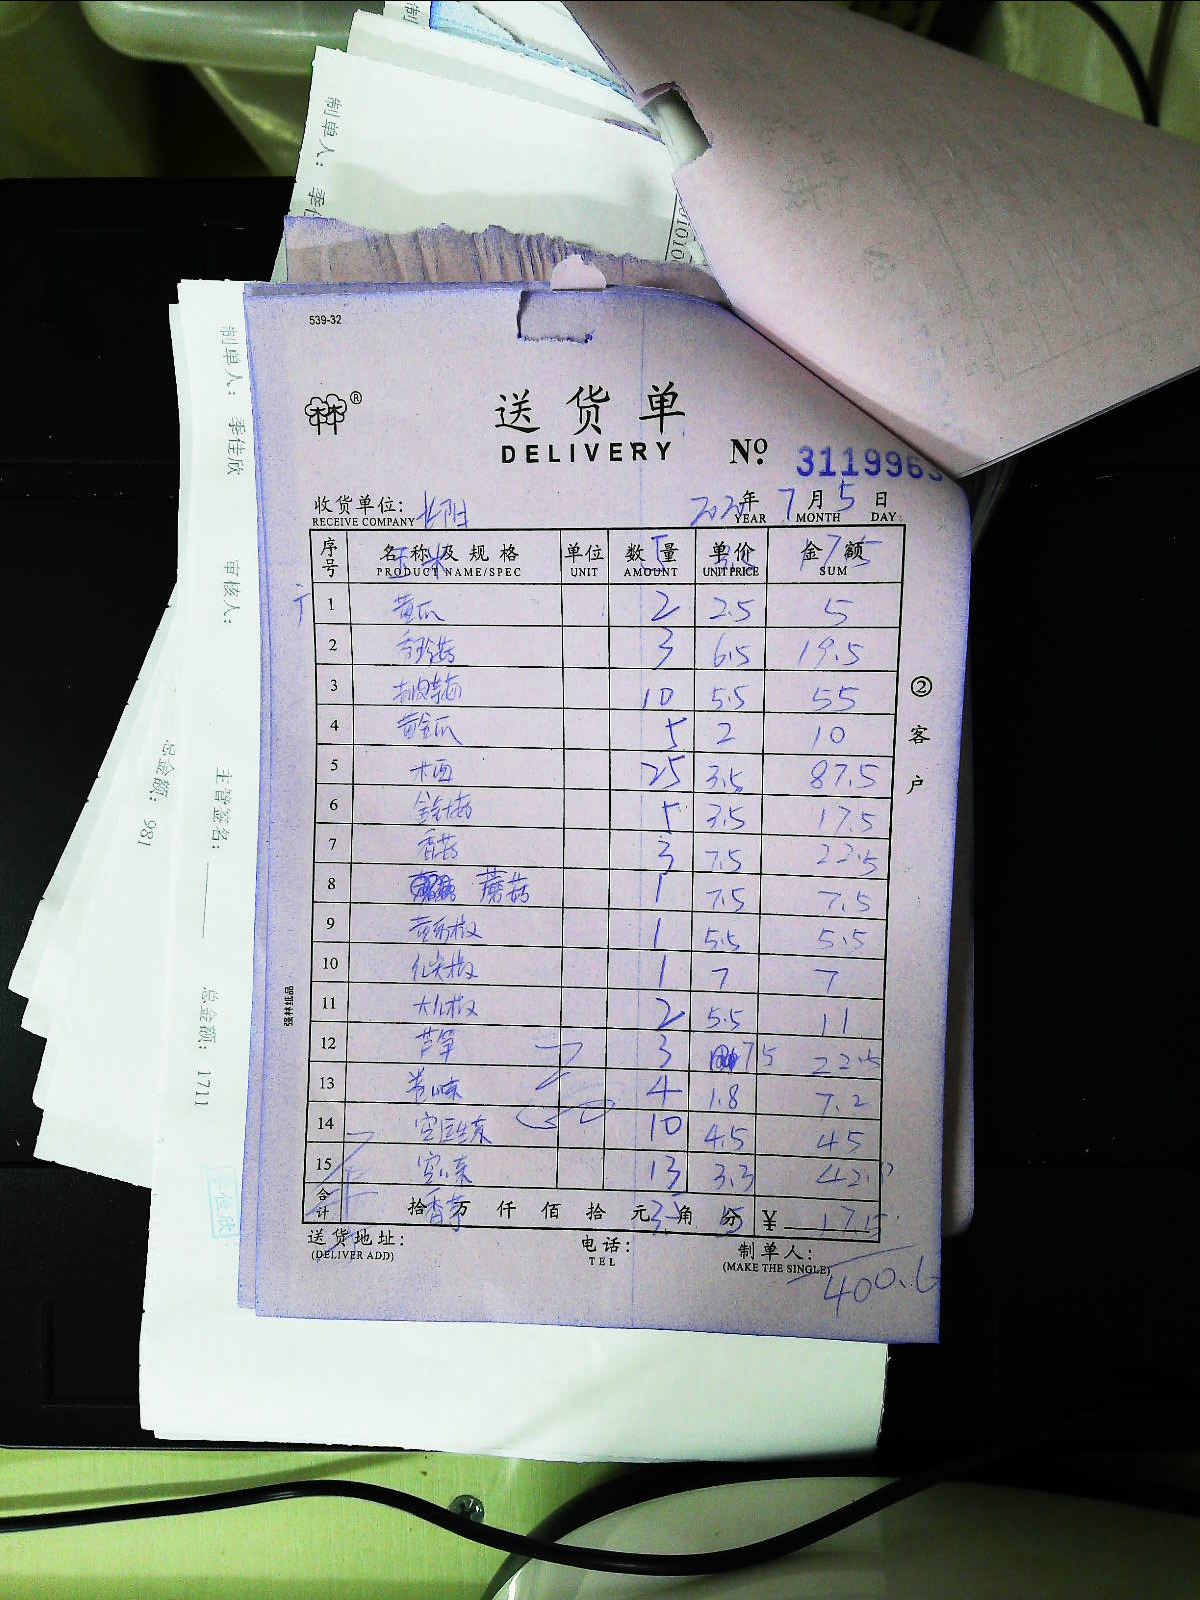 制单人：
制单人： 季佳欣
审核人：
主管签名：
总金额： 1711
总金额： 981
季佳欣
539-32
林 ®
送货单
DELIVERY
№ 3119963
收货单位：
RECEIVE COMPANY
2020 年 7 月 5 日
YEAR MONTH DAY
序号 名称及规格 单位 数量 单价 金额
PRODUCT NAME/SPEC UNIT AMOUNT UNIT PRICE SUM
玉米 5 3.5 17.5
1 黄瓜 2 2.5 5
2 3 6.5 19.5
3 10 5.5 55
4 黄金瓜 5 2 10
5 25 3.5 87.5
6 金针菇 5 3.5 17.5
7 香菇 3 7.5 22.5
8 蘑菇 1 7.5 7.5
9 1 5.5 5.5
10 1 7 7
11 2 5.5 11
12 芦笋 3 7.5 22.5
13 4 1.8 7.2
14 10 4.5 45
15 13 3.3 42.9
合计 拾 万 仟 佰 拾 元 角 分 ¥
香芋 3.5 5 17.5
送货地址：
(DELIVER ADD)
电话：
TEL
制单人：
(MAKE THE SINGLE)
400.6
② 客户
强林纸品